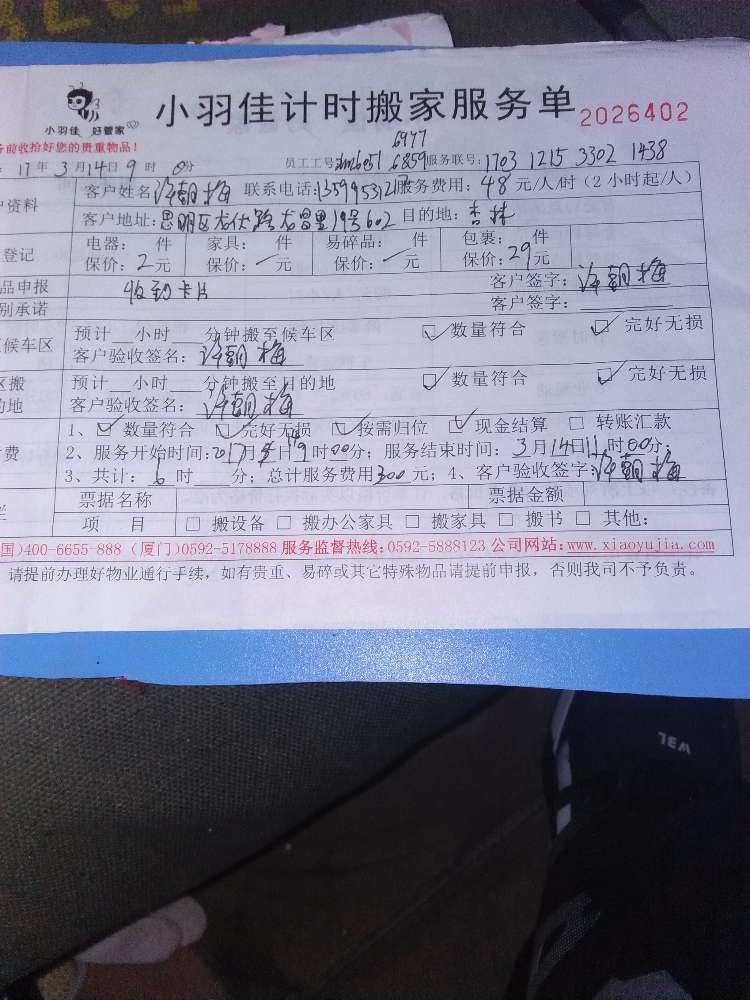 小羽佳计时搬家服务单 2026402
小羽佳 好管家
前收拾好您的贵重物品!
6977
17年3月14日9时0分 员工工号 6859 服务联号: 1703 1215 3302 1438
户资料 客户姓名: 许朝梅 联系电话: 服务费用: 48元/人/时(2小时起/人)
客户地址: 思明区龙伏路龙昌里19号602 目的地: 杏林
登记 电器: 件 家具: 件 易碎品: 件 包裹: 件
保价: 2元 保价: 元 保价: 元 保价: 29元
品申报 收到卡片 客户签字: 许朝梅
别承诺 客户签字:
候车区 预计 小时 分钟搬至候车区 ☑数量符合 ☑完好无损
客户验收签名: 许朝梅
区搬 预计 小时 分钟搬至目的地 ☑数量符合 ☑完好无损
的地 客户验收签名: 许朝梅
1、☑数量符合 ☑完好无损 ☑按需归位 ☑现金结算 □转账汇款
费 2、服务开始时间: 2017 月 日9时00分; 服务结束时间: 3月14日11时00分;
3、共计: 6时 分; 总计服务费用300元; 4、客户验收签字: 许朝梅
票据名称 票据金额
项 目 □搬设备 □搬办公家具 □搬家具 □搬书 □其他:
国)400-6655-888 (厦门)0592-5178888 服务监督热线:0592-5888123 公司网站:www.xiaoyujia.com
请提前办理好物业通行手续,如有贵重、易碎或其它特殊物品请提前申报,否则我司不予负责。